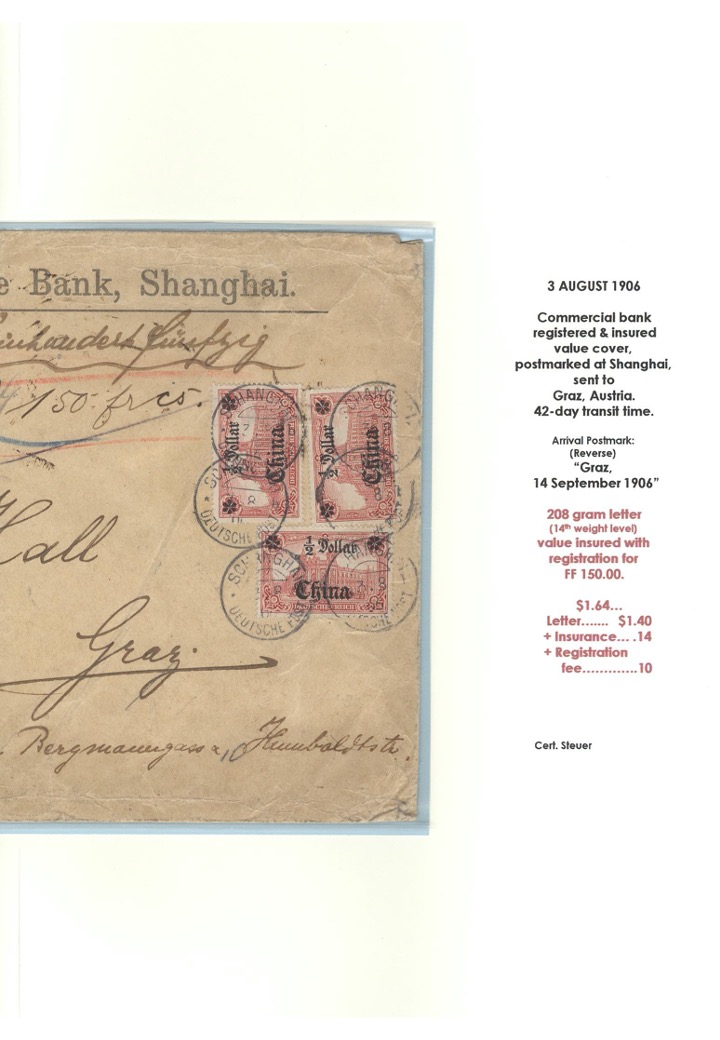 e Bank, Shanghai.
Einhundert fünfzig
150 frcs.
½ Dollar
China
½ Dollar
China
½ Dollar
China
SCHANGHAI
DEUTSCHE POST
SCHANGHAI
DEUTSCHE POST
Hall
Graz.
Bergmanngasse, Humboldtstr.
3 AUGUST 1906
Commercial bank
registered & insured
value cover,
postmarked at Shanghai,
sent to
Graz, Austria.
42-day transit time.
Arrival Postmark:
(Reverse)
“Graz,
14 September 1906”
208 gram letter
(14th weight level)
value insured with
registration for
FF 150.00.
$1.64...
Letter....... $1.40
+ Insurance... .14
+ Registration
fee.............10
Cert. Steuer